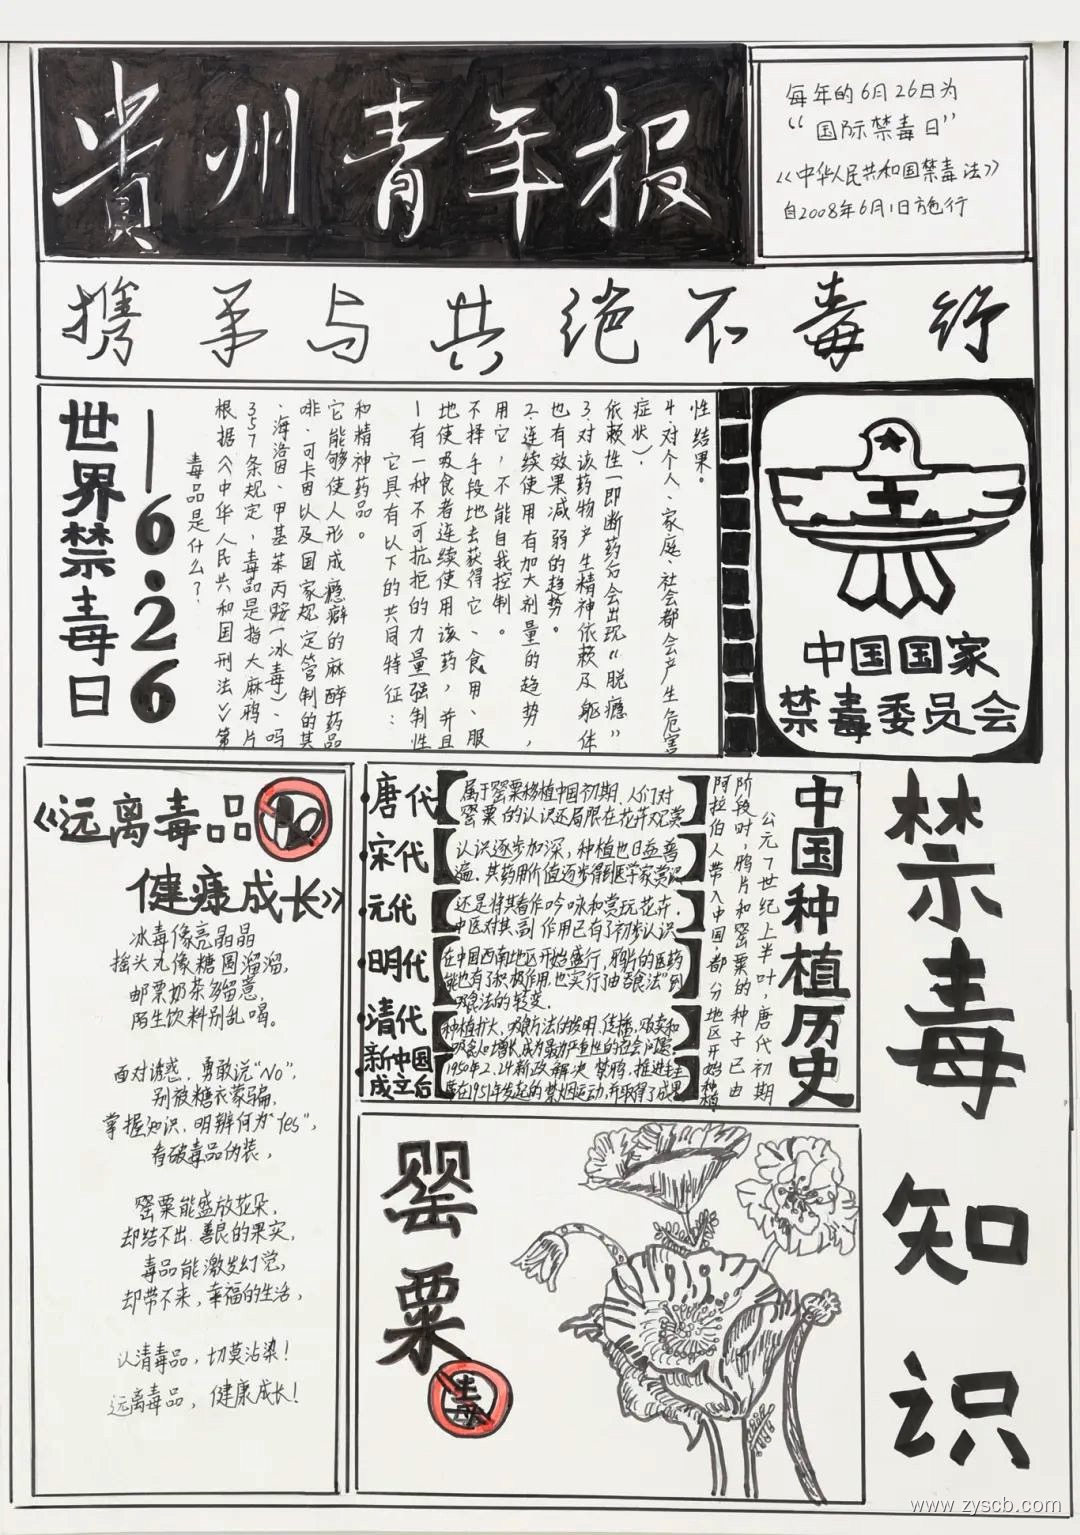 贵州青年报
每年的6月26日为
“国际禁毒日”
《中华人民共和国禁毒法》
自2008年6月1日施行
携手与共 绝不毒行
世界禁毒日
—6.26
毒品是什么？
根据《中华人民共和国刑法》第
357条规定，毒品是指大麻鸦片
、海洛因、甲基苯丙胺（冰毒）、吗
啡、可卡因以及国家规定管制的其
它能够使人形成瘾癖的麻醉药品
和精神药品。
它具有以下的共同特征：
1有一种不可抗拒的力量强制性
地使吸食者连续使用该药，并且
不择手段地去获得它、食用、服
用它，不能自我控制。
2.连续使用有加大剂量的趋势，
也有效果减弱的趋势。
3.对该药物产生精神依赖及躯体
依赖性一即断药后会出现“脱瘾”
症状）。
4.对个人、家庭、社会都会产生危害
性结果。
中国国家
禁毒委员会
《远离毒品
健康成长》
冰毒像亮晶晶
摇头丸像糖圆溜溜，
邮票奶茶多留意，
陌生饮料别乱喝。
面对诱惑，勇敢说“No”，
别被糖衣蒙骗，
掌握知识，明辨何为“Yes”，
看破毒品伪装，
罂粟能盛放花朵，
却结不出善良的果实，
毒品能激发幻觉，
却带不来，幸福的生活，
认清毒品，切莫沾染！
远离毒品，健康成长！
中国种植历史
公元7世纪上半叶，唐代初期
阶段时，鸦片和罂粟的种子已由
阿拉伯人带入中国，部分地区开始种植
唐代
属于罂粟移植中国初期，人们对
罂粟的认识还局限在花卉观赏
宋代
认识逐步加深，种植也日益普
遍。其药用价值逐步得到医学家赏识
元代
还是将其看作吟咏和赏玩花卉．
中医对其副作用已有了初步认识
明代
在中国西南地区开始盛行，鸦片的医药
能也有了积极作用，也实行了由“吞食法”到
吸食法的转变．
清代
种植扩大，吸食方法的发明、传播，贩卖和
吸食人口增长，成为最为严重性的社会问题．
新中国
成立后
罂粟
毒
禁毒知识
www.zyscb.com